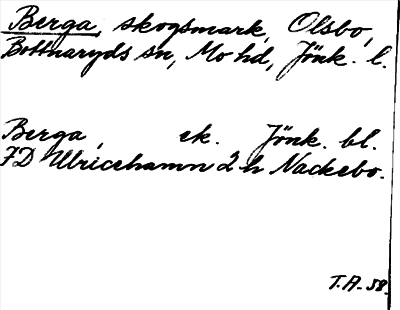 Berga, skogsmark, Olsbo,
Bottnaryds sn, Mo hd, Jönk. l.
Berga, ek. Jönk. bl.
7D Ulricehamn 2 h Nackebo.
T.A. 58.